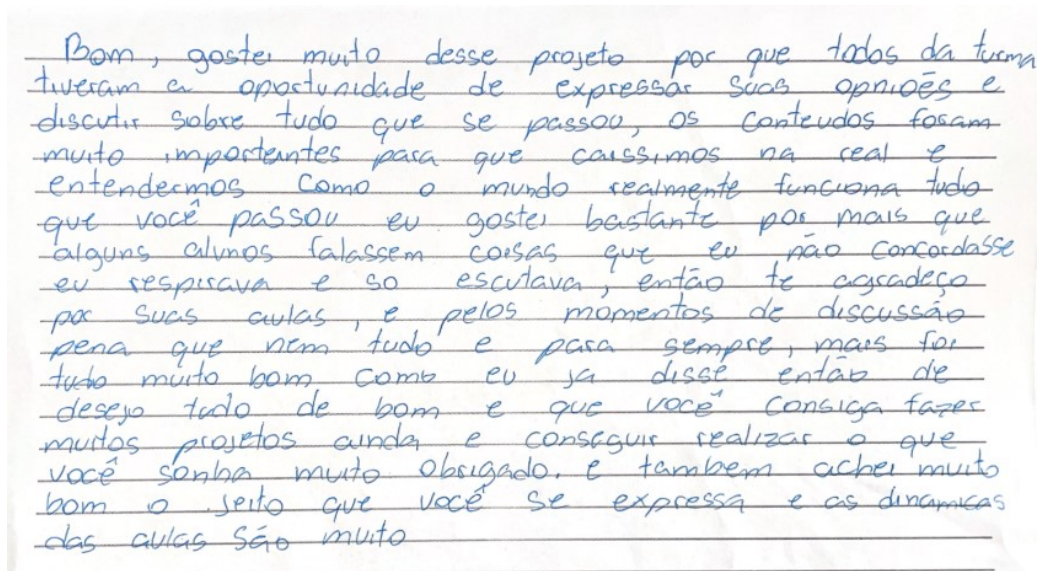 Bom, gostei muito desse projeto por que todos da turma
tiveram a oportunidade de expressar suas opniões e
discutir sobre tudo que se passou, os conteudos foram
muito importantes para que caissimos na real e
entendermos como o mundo realmente funciona tudo
que você passou eu gostei bastante por mais que
alguns alunos falassem coisas que eu não concordasse
eu respirava e so escutava, então te agradeço
por suas aulas, e pelos momentos de discussão
pena que nem tudo e para sempre, mais foi
tudo muito bom como eu ja disse então de
desejo tudo de bom e que você consiga fazer
muitos projetos ainda e conseguir realizar o que
você sonha muito obrigado. e tambem achei muito
bom o jeito que você se expressa e as dinamicas
das aulas são muito